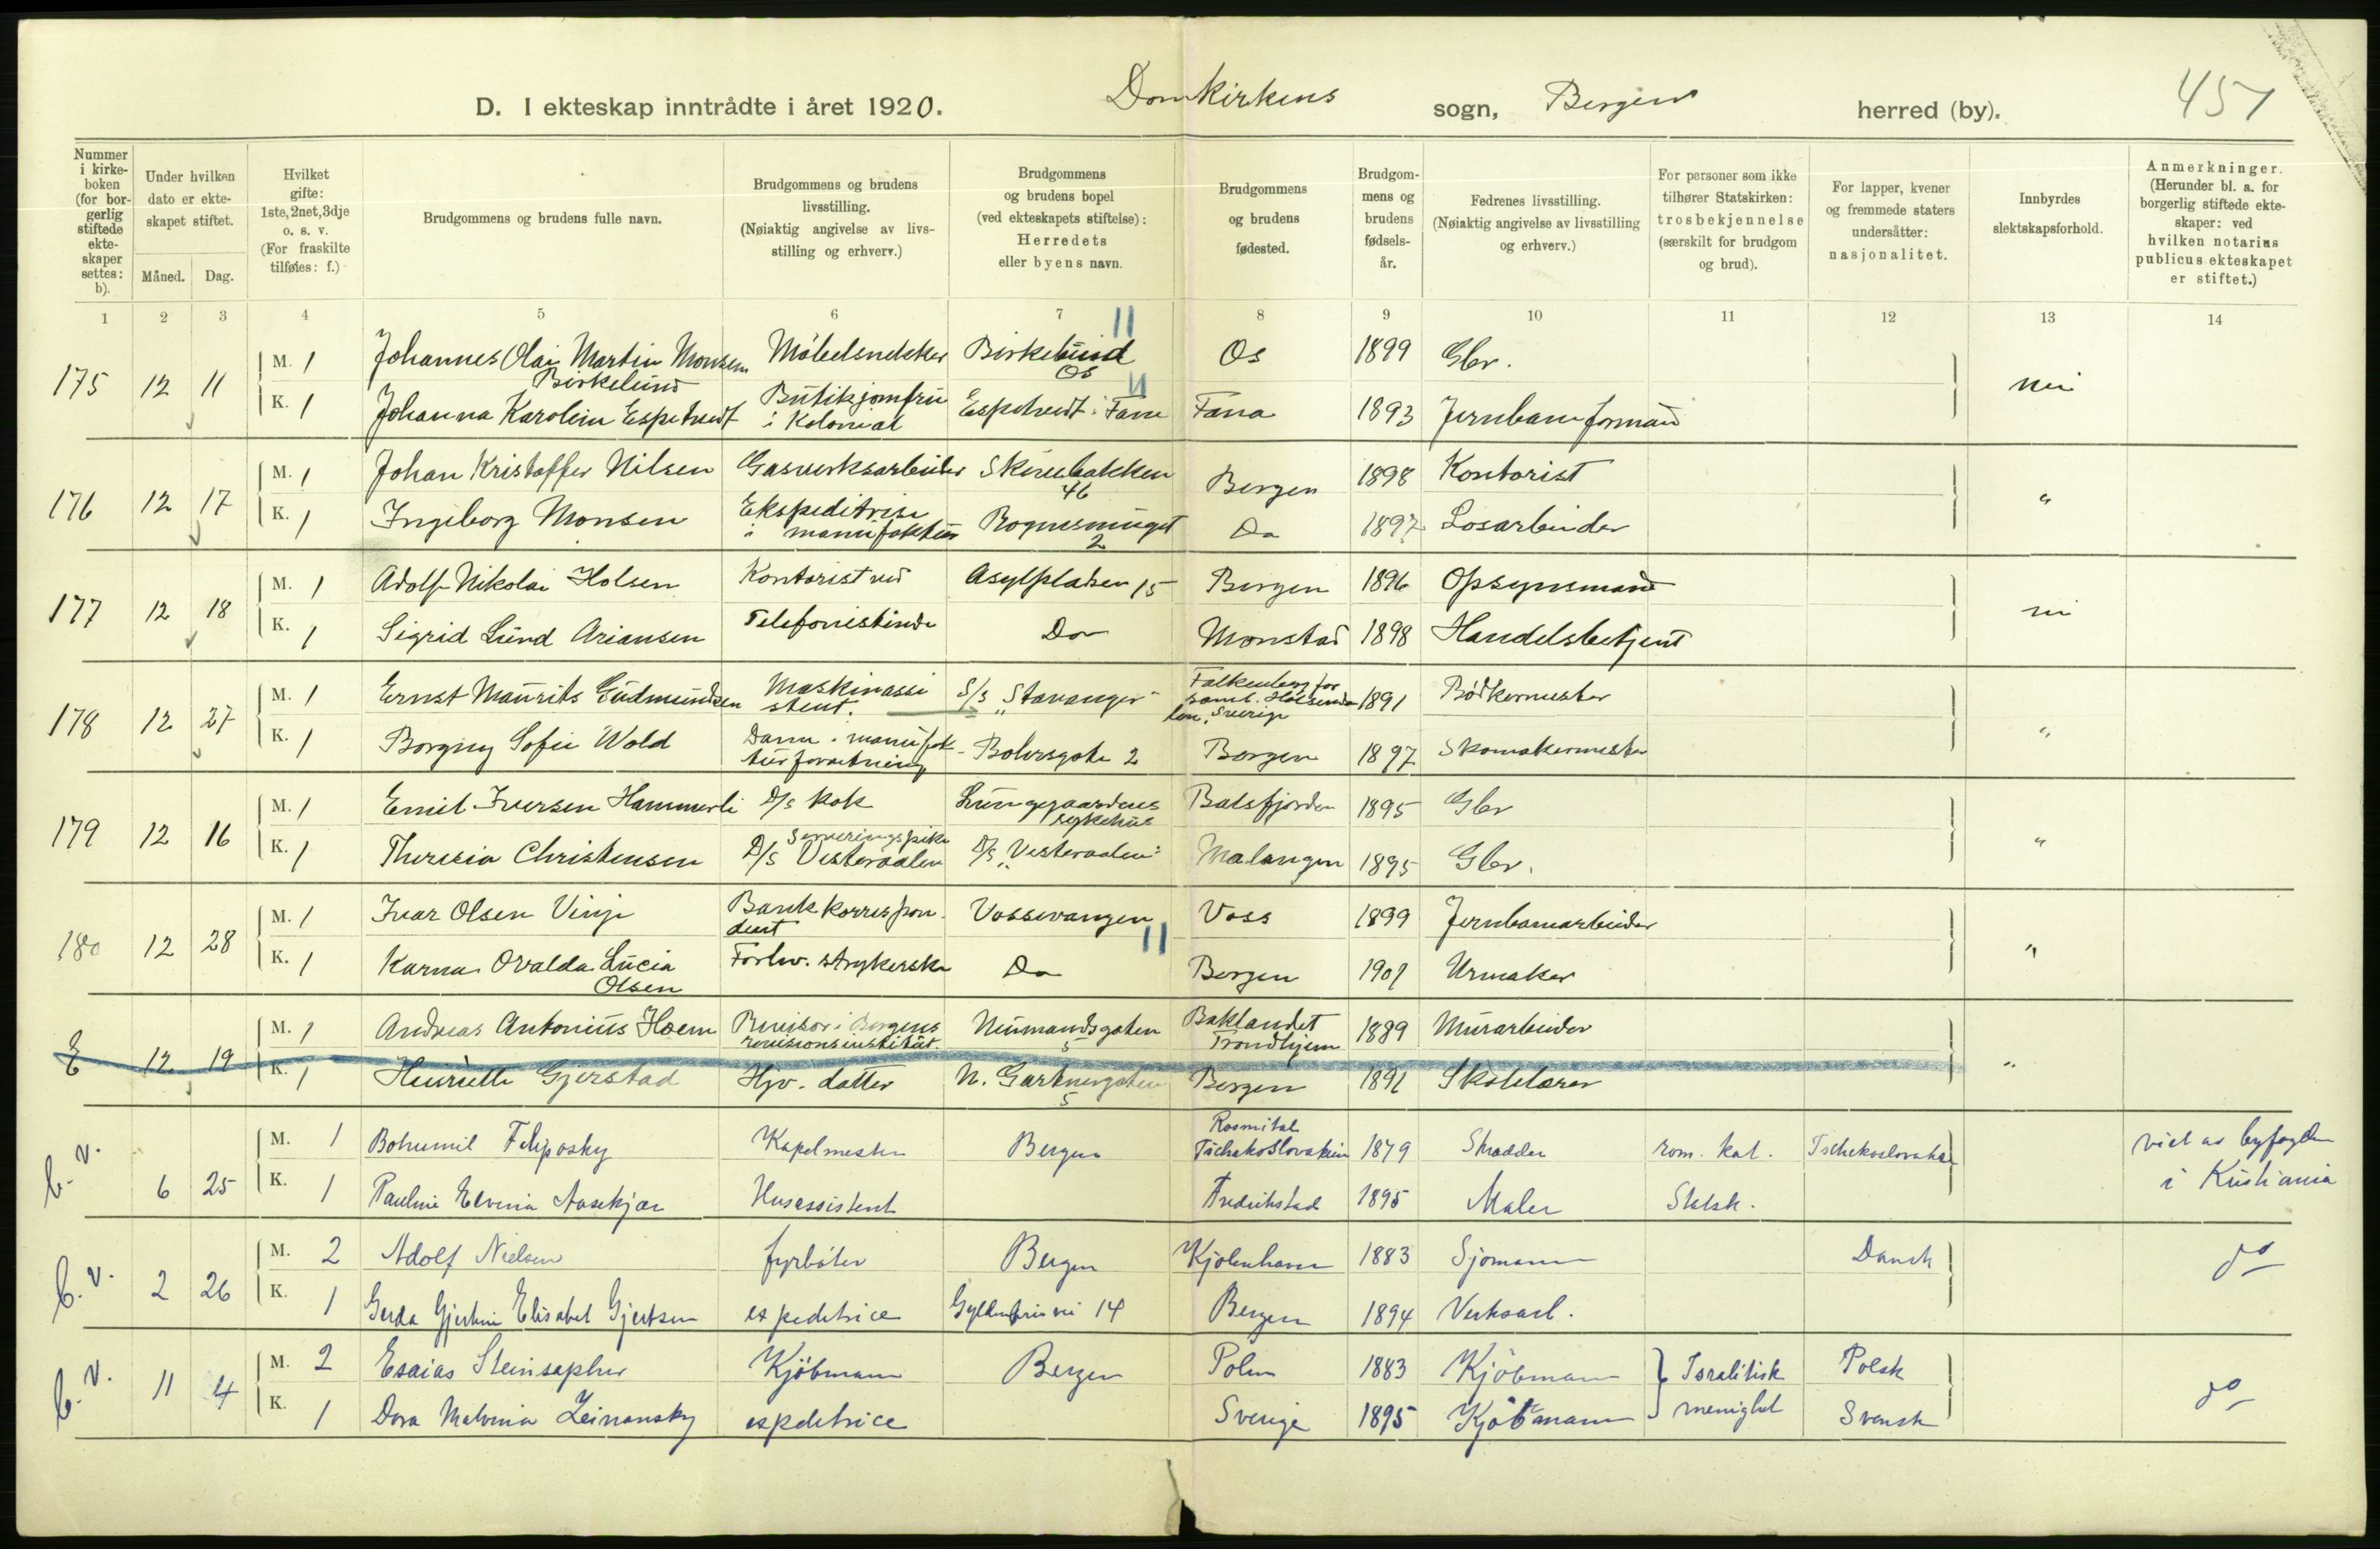 D. I ekteskap inntrådte i året 1920. Domkirkens sogn, Bergen herred (by). 451
Nummer i kirkeboken (for borgerlig stiftede ekteskaper settes: b).
Under hvilken dato er ekteskapet stiftet.
Måned. Dag.
Hvilket gifte: 1ste, 2net, 3dje o. s. v. (For fraskilte tilføies: f.)
Brudgommens og brudens fulle navn.
Brudgommens og brudens livsstilling. (Nøiaktig angivelse av livsstilling og erhverv.)
Brudgommens og brudens bopel (ved ekteskapets stiftelse): Herredets eller byens navn.
Brudgommens og brudens fødested.
Brudgommens og brudens fødselsår.
Fedrenes livsstilling. (Nøiaktig angivelse av livsstilling og erhverv.)
For personer som ikke tilhører Statskirken: trosbekjennelse (særskilt for brudgom og brud).
For lapper, kvener og fremmede staters undersåtter: nasjonalitet.
Innbyrdes slektskapsforhold.
Anmerkninger. (Herunder bl. a. for borgerlig stiftede ekteskaper: ved hvilken notarius publicus ekteskapet er stiftet.)
1 2 3 4 5 6 7 8 9 10 11 12 13 14
11
175 12 11 M. 1 Johannes Olai Martin Monsen Birkelund Möbelsnekker Birkelund Os Os 1899 Gbr. nei
K. 1 Johanna Karoline Espetvedt Butikjomfru i Kolonial Espetvedt i Fane 11 Fana 1893 Jernbaneformand
176 12 17 M. 1 Johan Kristoffer Nilsen Gasverksarbeider Skivebakken 46 Bergen 1898 Kontorist "
K. 1 Ingeborg Monsen Ekspeditrise i manufaktur 2 Do 1897 Losarbeider
177 12 18 M. 1 Adolf Nikolai Holsen Kontorist ved Asylpladsen 15 Bergen 1896 Opsynsmand nei
K. 1 Sigrid Lund Ariansen Telefonistinde Do Monstad 1898 Handelsbetjent
178 12 27 M. 1 Ernst Maurits Gudmundsen Maskinassistent. S/s "Stavanger" Falkenberg Sverige 1891 Bödkermester "
K. 1 Borgny Sofie Wold Dame i manufakturforretning Bohrsgate 2 Bergen 1897 Skomakermester
179 12 16 M. 1 Emil Iversen Hammerli D/s kok Lungegaardens sykehus Balsfjorden 1895 Gbr "
K. 1 Theresia Christensen Serveringspike D/s Vesteraalen D/s "Vesteraalen" Malangen 1895 Gbr.
180 12 28 M. 1 Ivar Olsen Vinje Bankkorrespondent Vossevangen Voss 1899 Jernbanearbeider "
K. 1 Karna Ovalda Lucia Olsen Forhv. strykerske Do 11 Bergen 1901 Urmaker
E 12 19 M. 1 Andreas Antonius Hoem Revisor i Bergens revisionsinstitut Neumandsgaten 5 Baklandet Trondhjem 1889 Murarbeider "
K. 1 Henriette Gjerstad Hjv. datter N. Gartnergaten 5 Bergen 1891 Skolelærer
b. v. 6 25 M. 1 Bohumil Filipovsky Kapelmester Bergen Rosmital Tschekoslovakien 1879 Skrædder rom. kat. Tschekoslovaker viet av byfogden i Kristiania
K. 1 Pauline Elvina Aasekjær Husassistent Fredrikstad 1895 Maler Statsk.
b. v. 2 26 M. 2 Adolf Nielsen fyrböter Bergen Kjöbenhavn 1883 Sjömann Dansk do
K. 1 Gerda Gjertine Elisabet Gjertsen expeditrice 14 Bergen 1894 Verksarb.
b. v. 11 4 M. 2 Esaias Steinsapher Kjöbmann Bergen Polen 1883 Kjöbmann Israelitisk menighet Polsk do
K. 1 Dora Malvina Zeinansky expeditrice Sverige 1895 Kjöbmann Svensk